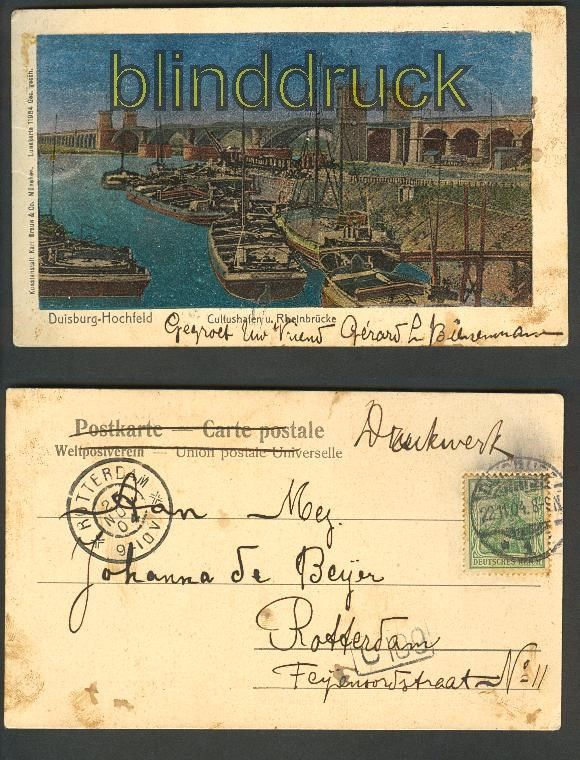 blinddruck
Kunstanstalt Karl Braun & Co. München. Lunakarte 11984 Ges. gesch.
Duisburg-Hochfeld Cultushafen u. Rheinbrücke
Gegroet Uw Vriend Gérard
Postkarte — Carte postale
Weltpostverein — Union postale Universelle
Drukwerk
ROTTERDAM
NOV
04
22.11.04. 8-
DEUTSCHES REICH
Aan Mej.
Johanna de Beijer
Rotterdam
100
Feijenoordstraat No 11